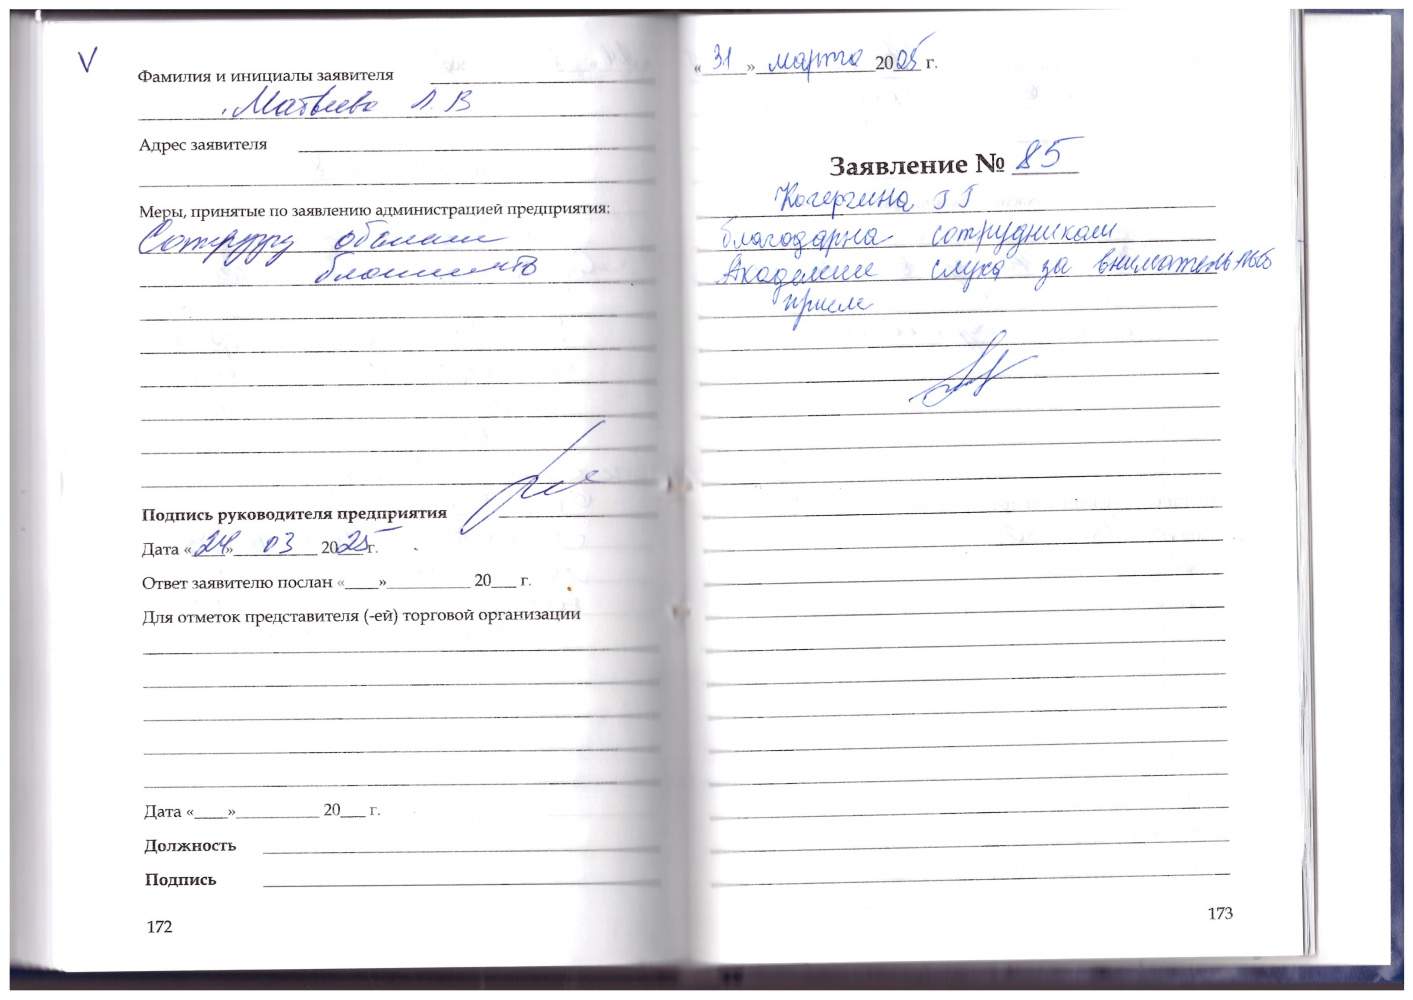 V
Фамилия и инициалы заявителя
Матвеева Л. В
Адрес заявителя
Меры, принятые по заявлению администрацией предприятия:
Сотруднику объявлена
Подпись руководителя предприятия
Дата «24» 03 2025 г.
Ответ заявителю послан «____»__________ 20___ г.
Для отметок представителя (-ей) торговой организации
Дата «____»__________ 20___ г.
Должность
Подпись
172
«31» марта 2025 г.
Заявление № 85
Кочергина Г Г
благодарна сотрудникам
Академии слуха за внимательность
приеме
173